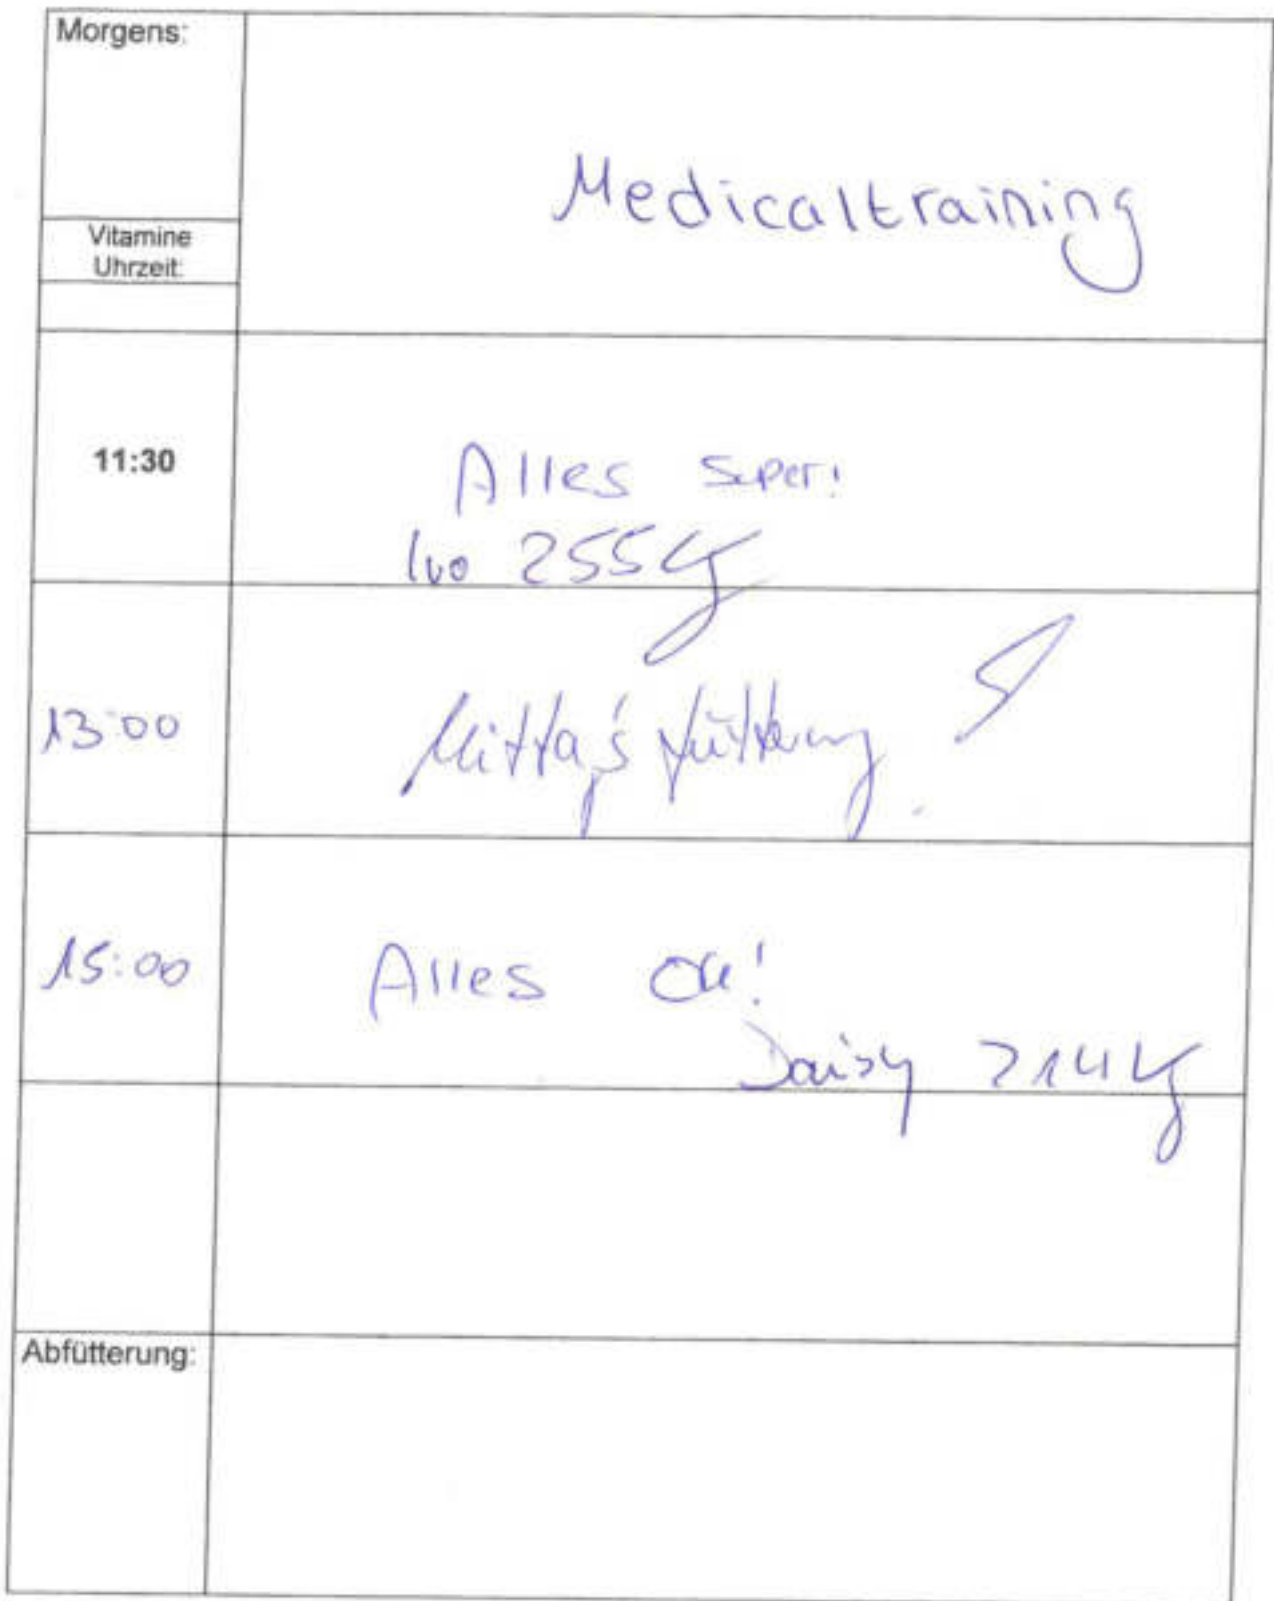 Morgens:
Medicaltraining
Vitamine
Uhrzeit:
11:30
Alles super!
Ivo 255kg
13:00
Mittagsfütterung
15:00
Alles ok!
Daisy 214kg
Abfütterung: